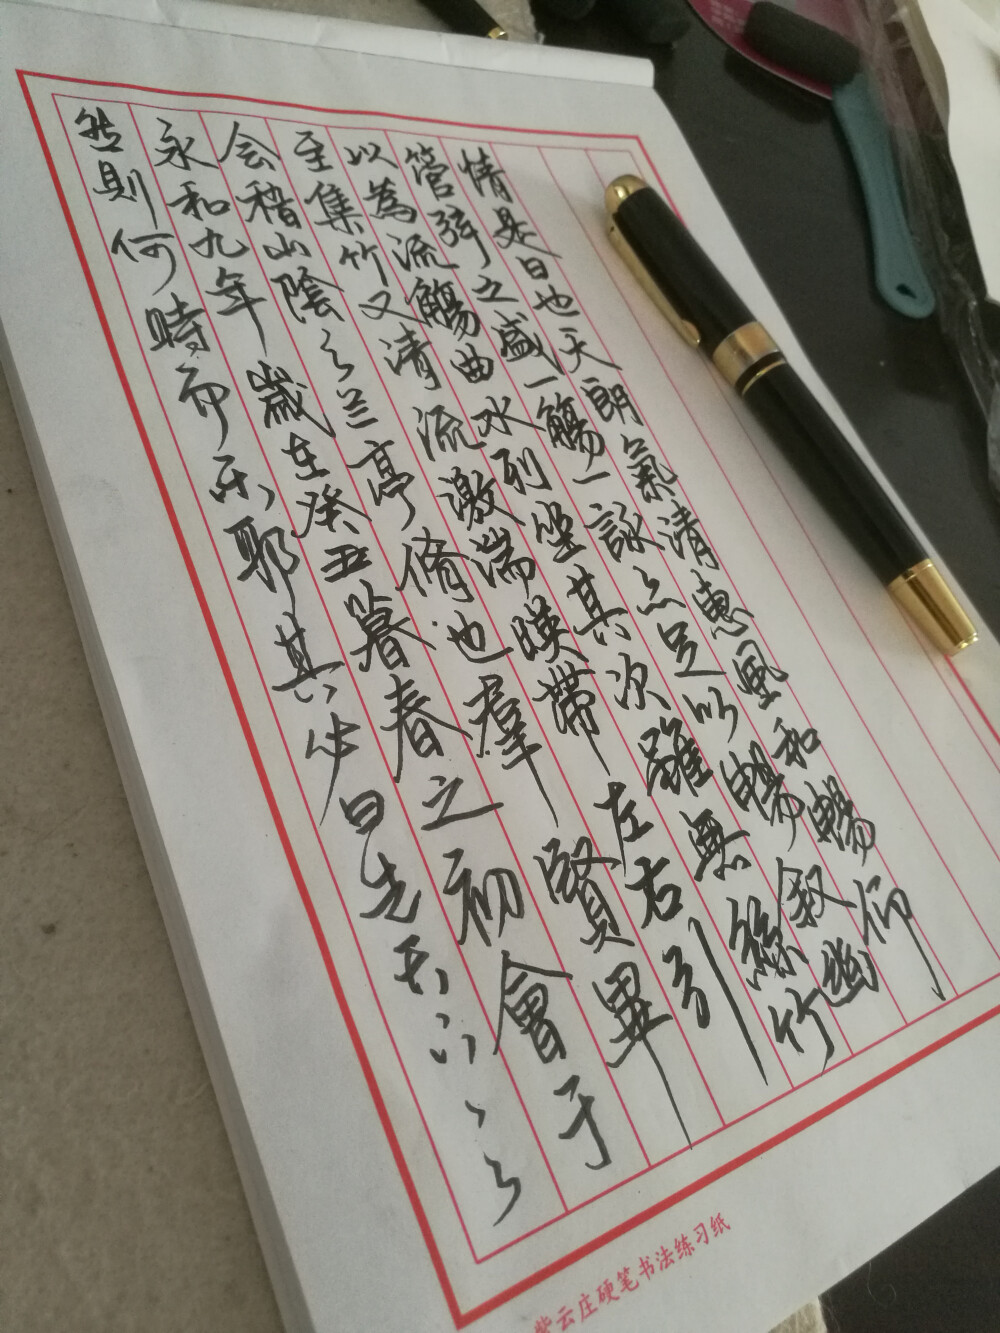 然則何時而乐耶其必曰先天下之
永和九年歲在癸丑暮春之初會于
会稽山陰之兰亭脩也羣賢畢
至集竹又清流激湍暎帶左右引
以為流觴曲水列坐其次雖無絲竹
管弦之盛一觴一詠亦足以暢叙幽
情是日也天朗氣清惠風和暢仰
紫云庄硬笔书法练习纸